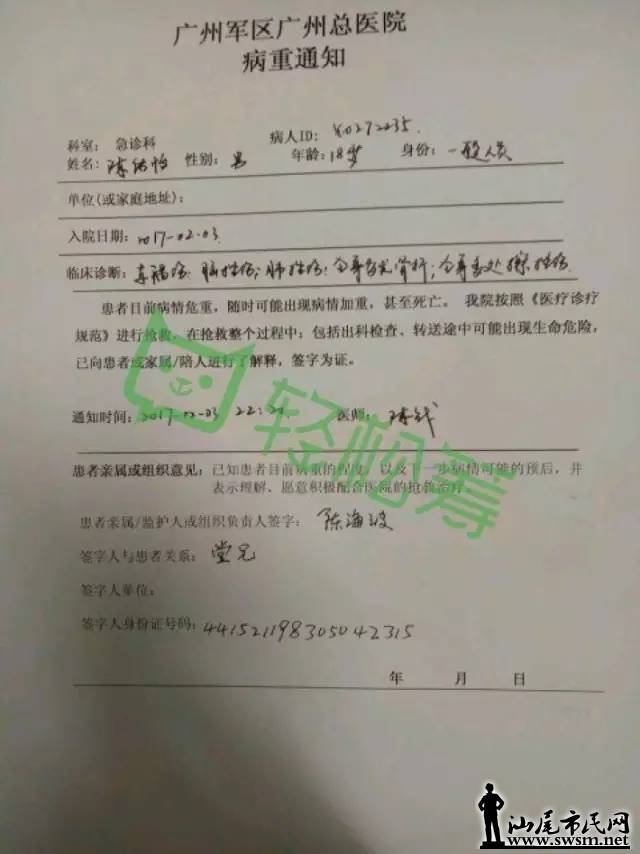 广州军区广州总医院
病重通知
科室: 急诊科 病人ID: 40272235.
姓名: 陈 怡 性别: 男 年龄: 18岁 身份: 一般人员
单位(或家庭地址):
入院日期: 2017-02-03.
临床诊断: 车祸伤: 脑挫伤; 肺挫伤; 全身多发骨折; 全身多处擦挫伤
患者目前病情危重,随时可能出现病情加重,甚至死亡。我院按照《医疗诊疗
规范》进行抢救,在抢救整个过程中;包括出科检查、转送途中可能出现生命危险,
已向患者或家属/陪人进行了解释,签字为证。
通知时间: 2017-02-03 22:2 医师: 陈
患者亲属或组织意见: 已知患者目前病重的程度,以及下一步病情可能的预后,并
表示理解、愿意积极配合医院的抢救治疗。
患者亲属/监护人或组织负责人签字: 陈海波
签字人与患者关系: 堂兄
签字人单位:
签字人身份证号码: 441521198305042315
年 月 日
轻松筹
汕尾市民网
www.swsm.net